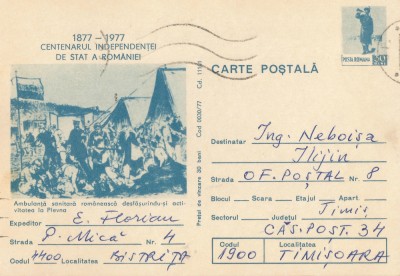 1877 – 1977
CENTENARUL INDEPENDENȚEI
DE STAT A ROMÂNIEI
POȘTA ROMÂNĂ
CARTE POȘTALĂ
Ambulanță sanitară românească desfășurîndu-și acti-
vitatea la Plevna
Expeditor E. Florian
Strada P. Mică Nr. 4
Codul 4400 Localitatea BISTRIȚA
Prețul de vînzare 30 bani Cod 0030/77
Destinatar Ing. Neboișa
Ilijin
Strada OF. POȘTAL Nr 8
Blocul Scara Etajul Apart.
Sectorul Județul Timiș
CĂS. POST. 34
Codul Localitatea
1900 TIMIȘOARA